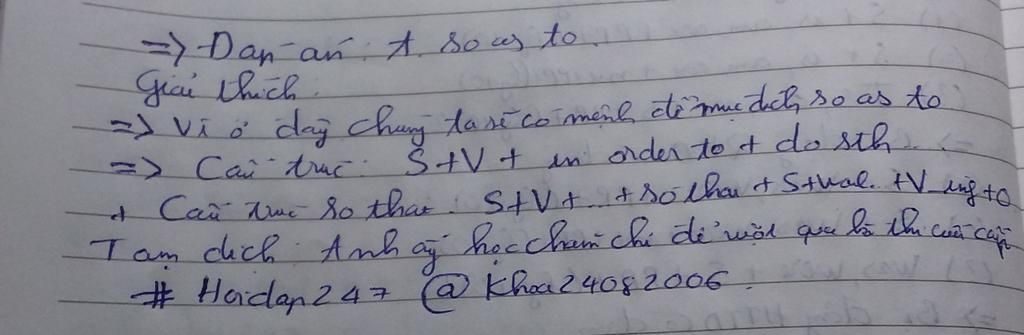 => Đáp án: A. so as to.
Giải thích.
=> Vì ở đây chúng ta sẽ có mệnh đề mục đích so as to
=> Cấu trúc: S+V + in order to + do sth
+ Cấu trúc so that. S+V+... + so that + S+ +V +O
Tạm dịch: Anh ấy học chăm chỉ để vượt qua kì thi cuối cấp
# Hoidap247 @ Khoa24082006.